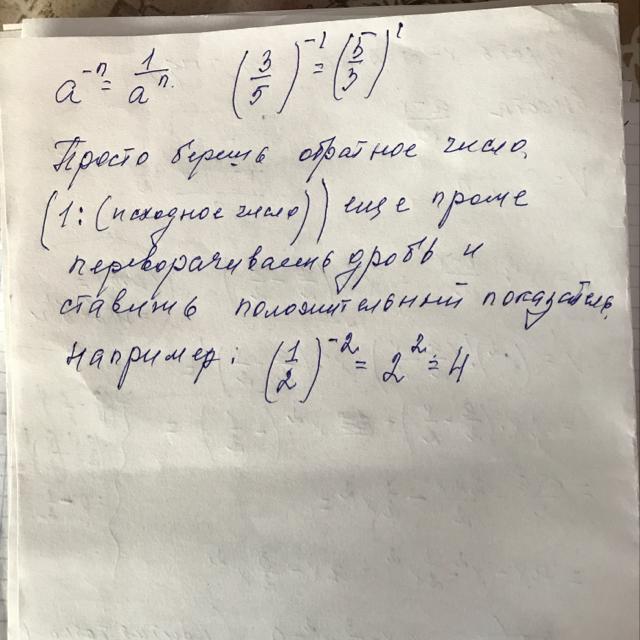 a⁻ⁿ = 1/aⁿ. (3/5)⁻¹ = (5/3)¹
Просто берешь обратное число,
(1:(исходное число)) еще проще
переворачиваешь дробь и
ставишь положительный показатель.
Например: (1/2)⁻² = 2² = 4